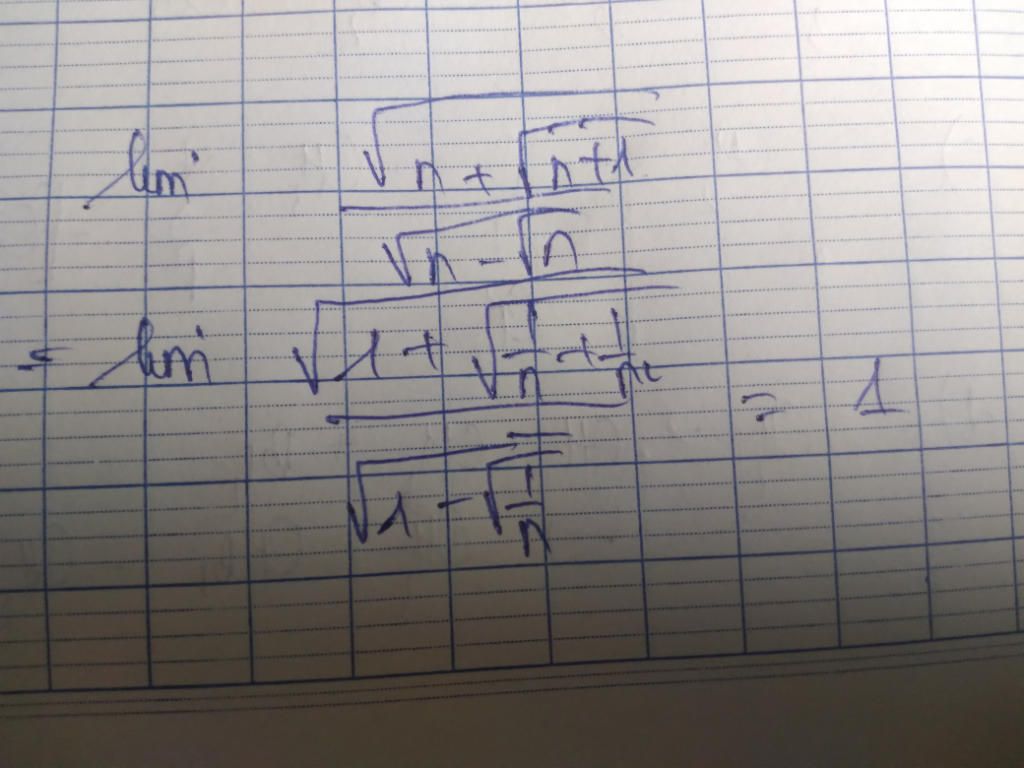 lim √(n + √(n+1)) / √(n - √n)
= lim √(1 + √(1/n + 1/n²)) / √(1 - √(1/n)) = 1